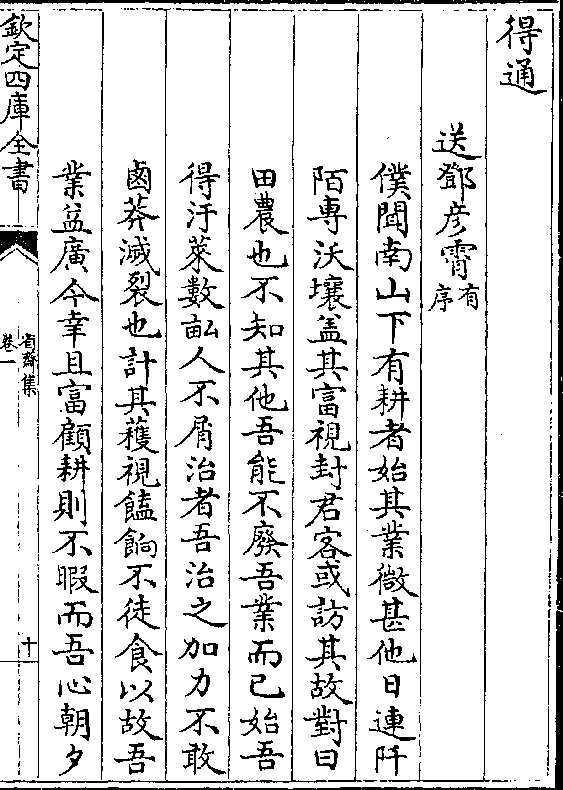 得通
送鄧彦霄有序
僕聞南山下有耕者始其業微甚他日連阡
陌専沃壤盖其富視封君客或訪其故對曰
田農也不知其他吾能不廢吾業而已始吾
得汙萊數畝人不屑治者吾治之加力不敢
鹵莽滅裂也計其穫視饁餉不徒食以故吾
業益廣今幸且富顧耕則不暇而吾心朝夕
欽定四庫全書
省齋集
卷一
十